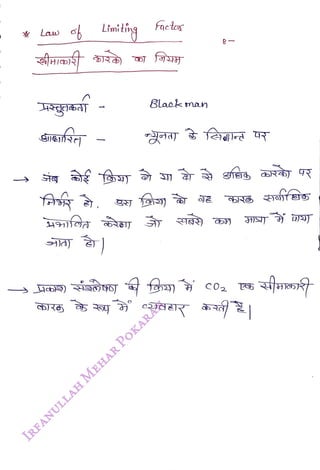 * Law of Limiting Factor :-
सीमाकारी कारको का नियम
प्रस्तुतकर्ता - Blackman
आधारित - न्यूनता के सिद्धान्त पर
→ जब कोई क्रिया दो या दो से अधिक कारको पर
निर्भर हो. उस क्रिया को वह कारक सर्वाधिक
प्रभावित करेगा जो सबसे कम मात्रा में पाया
जाता हो|
→ प्रकाश संश्लेषण की क्रिया में CO2 एक सीमाकारी
कारक के रूप में व्यवहार करती है|
IRFANULLAH MEHAR POKARAN